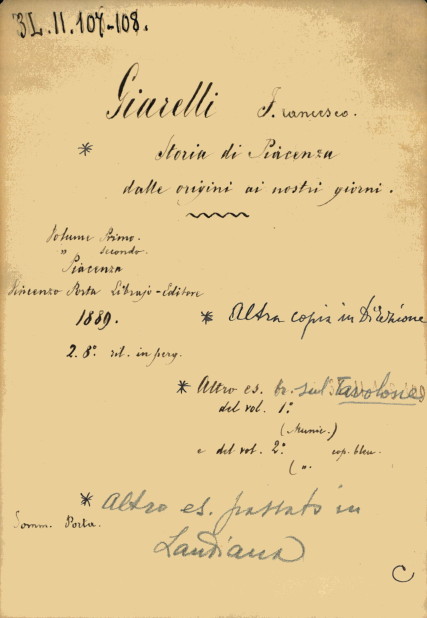 3L.II.107-108.
Giarelli Francesco.
* Storia di Piacenza
dalle origini ai nostri giorni.
Volume Primo.
" secondo.
Piacenza
Vincenzo Porta Librajo-Editore
1889.
* Altra copia in Direzione
2. 8° ril. in perg.
* Altro es. br. sul Tavolone
del vol. 1°
(Munic.)
e del vol. 2° cop. bleu.
( "
* Altro es. passato in
Landiana
Somm. Porta.
C